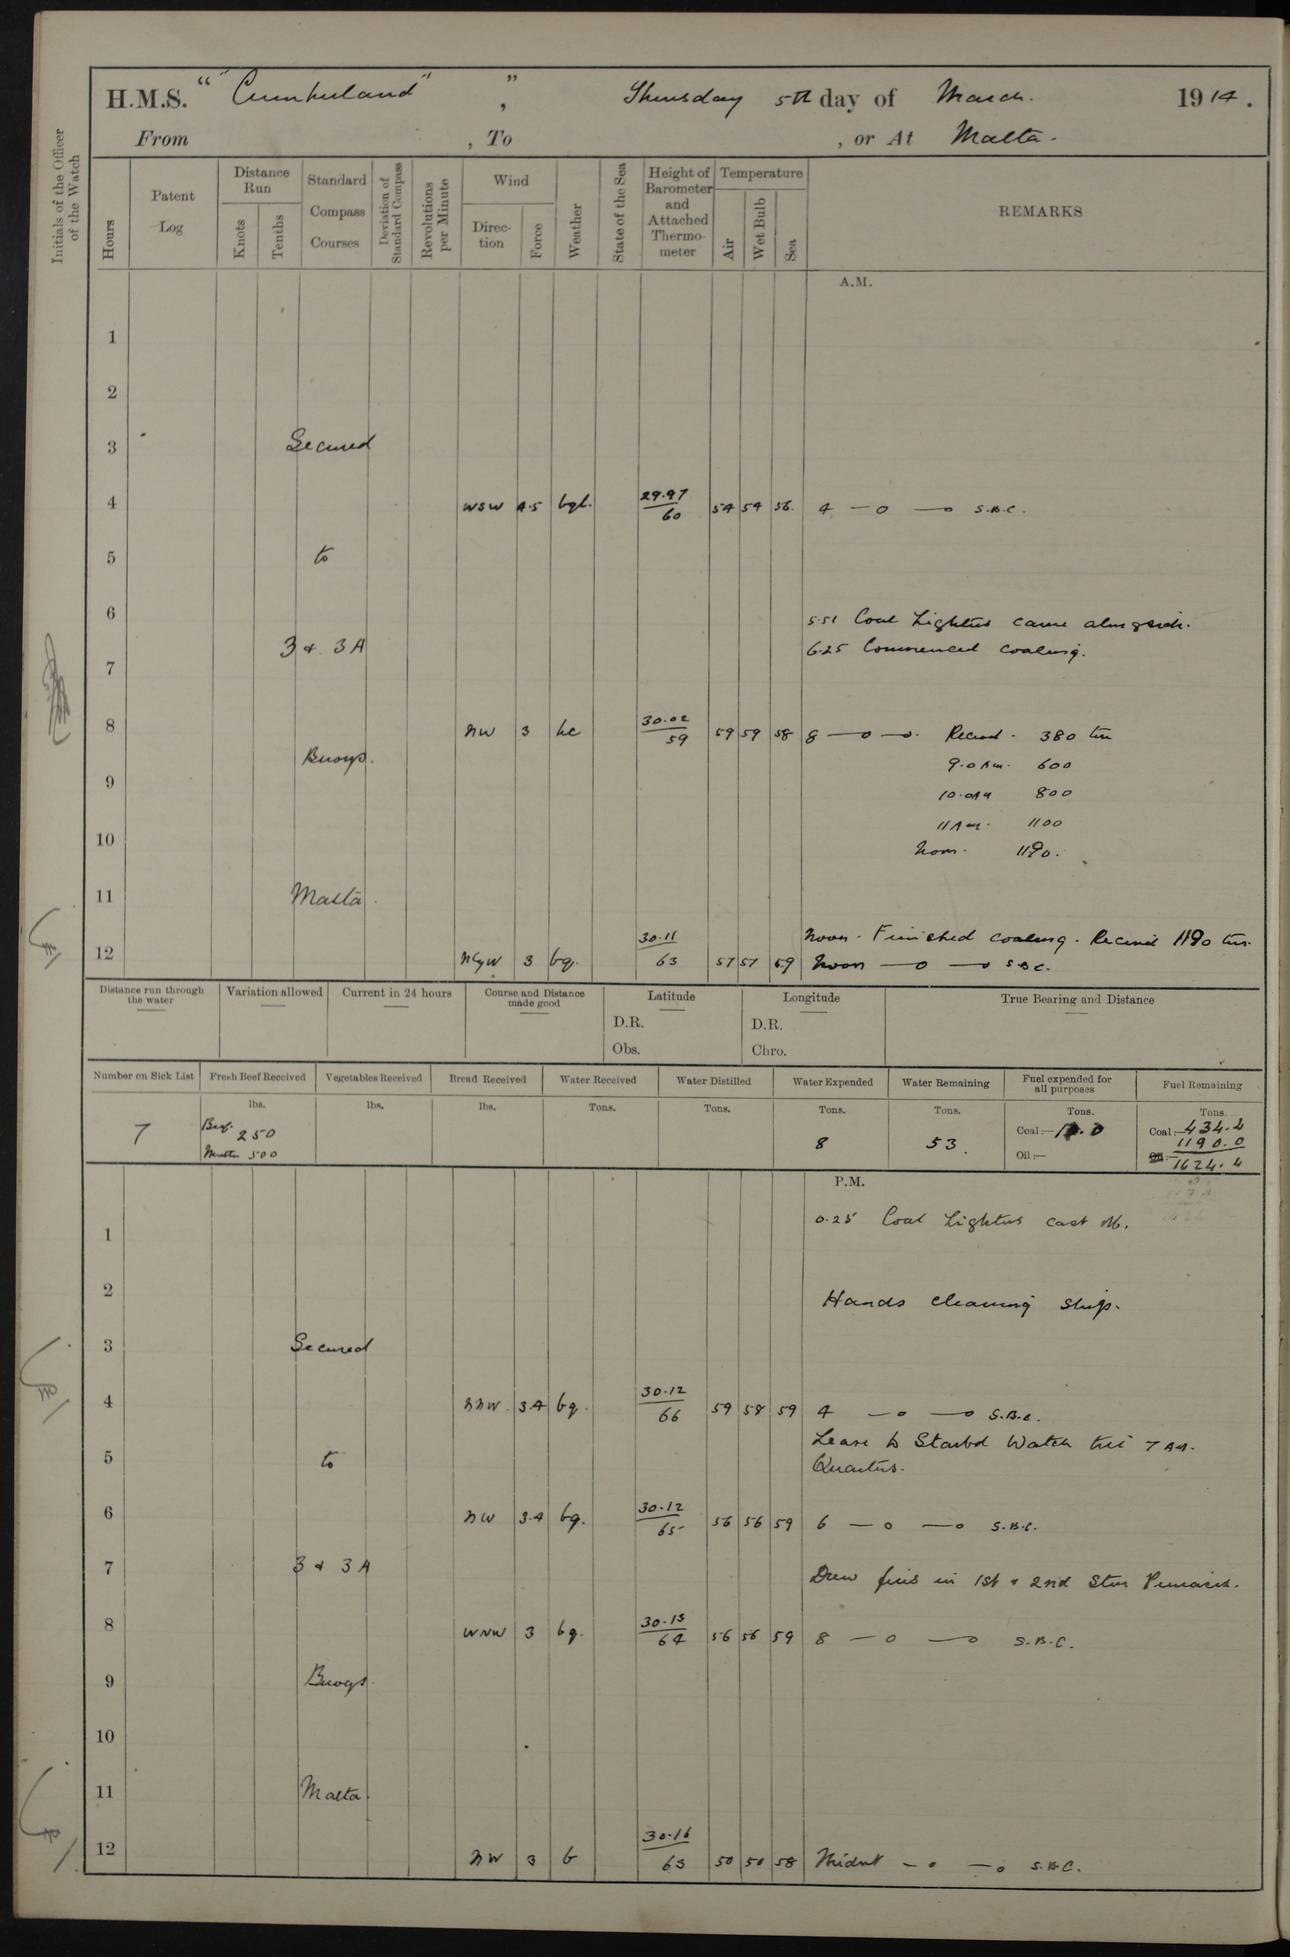 H.M.S. "Cumberland", Thursday 5th day of March. 1914.
From , To , or At Malta.
Initials of the Officer of the Watch
Hours
Patent Log
Distance Run
Knots
Tenths
Standard Compass Courses
Deviation of Standard Compass
Revolutions per Minute
Wind
Direction
Force
Weather
State of the Sea
Height of Barometer and Attached Thermometer
Temperature
Air
Wet Bulb
Sea
REMARKS
A.M.
1
2
3 Secured
4 WSW 4.5 29.97 60 54 54 56. 4 —o —o S.B.C.
5 to
6
5.51 Coal Lighters came alongside.
3 & 3A
6.25 Commenced coaling.
7
8 NW 3 bc 30.02 59 59 59 58 8 —o —o. Received. 380 tons
Buoys.
9.0 Am. 600
9
10.0AM 800
11 Am. 1100
10
Noon. 1190.
11 Malta
Noon. Finished coaling. Received 1190 tons.
12 NbyW 3 bq. 30.11 63 57 57 59 Noon —o —o S.B.C.
Distance run through the water
Variation allowed
Current in 24 hours
Course and Distance made good
Latitude
D.R.
Obs.
Longitude
D.R.
Chro.
True Bearing and Distance
Number on Sick List
Fresh Beef Received
Vegetables Received
Bread Received
Water Received
Water Distilled
Water Expended
Water Remaining
Fuel expended for all purposes
Fuel Remaining
lbs. lbs. lbs. Tons. Tons. Tons. Tons. Tons. Tons.
7
Beef. 250
Mutton 500
8
53.
Coal:—
Oil:—
Coal:— 434.4
1190.0
Oil:— 1624.4
P.M.
0.25 Coal Lighters cast off.
1
2
Hands cleaning ship.
3 Secured
4 NNW. 3.4 bq. 30.12 66 59 58 59 4 —o —o S.B.C.
Leave to Starbd Watch till 7 AM.
5 to
Quarters.
6 NW 3.4 bq. 30.12 65 56 56 59 6 —o —o S.B.C.
7 3 & 3A
Drew fires in 1st & 2nd Stn
8 WNW 3 bq. 30.15 64 56 56 59 8 —o —o S.B.C.
9 Buoys.
10
11 Malta.
12 NW 3 b 30.16 63 50 50 58 Midnt —o —o S.B.C.